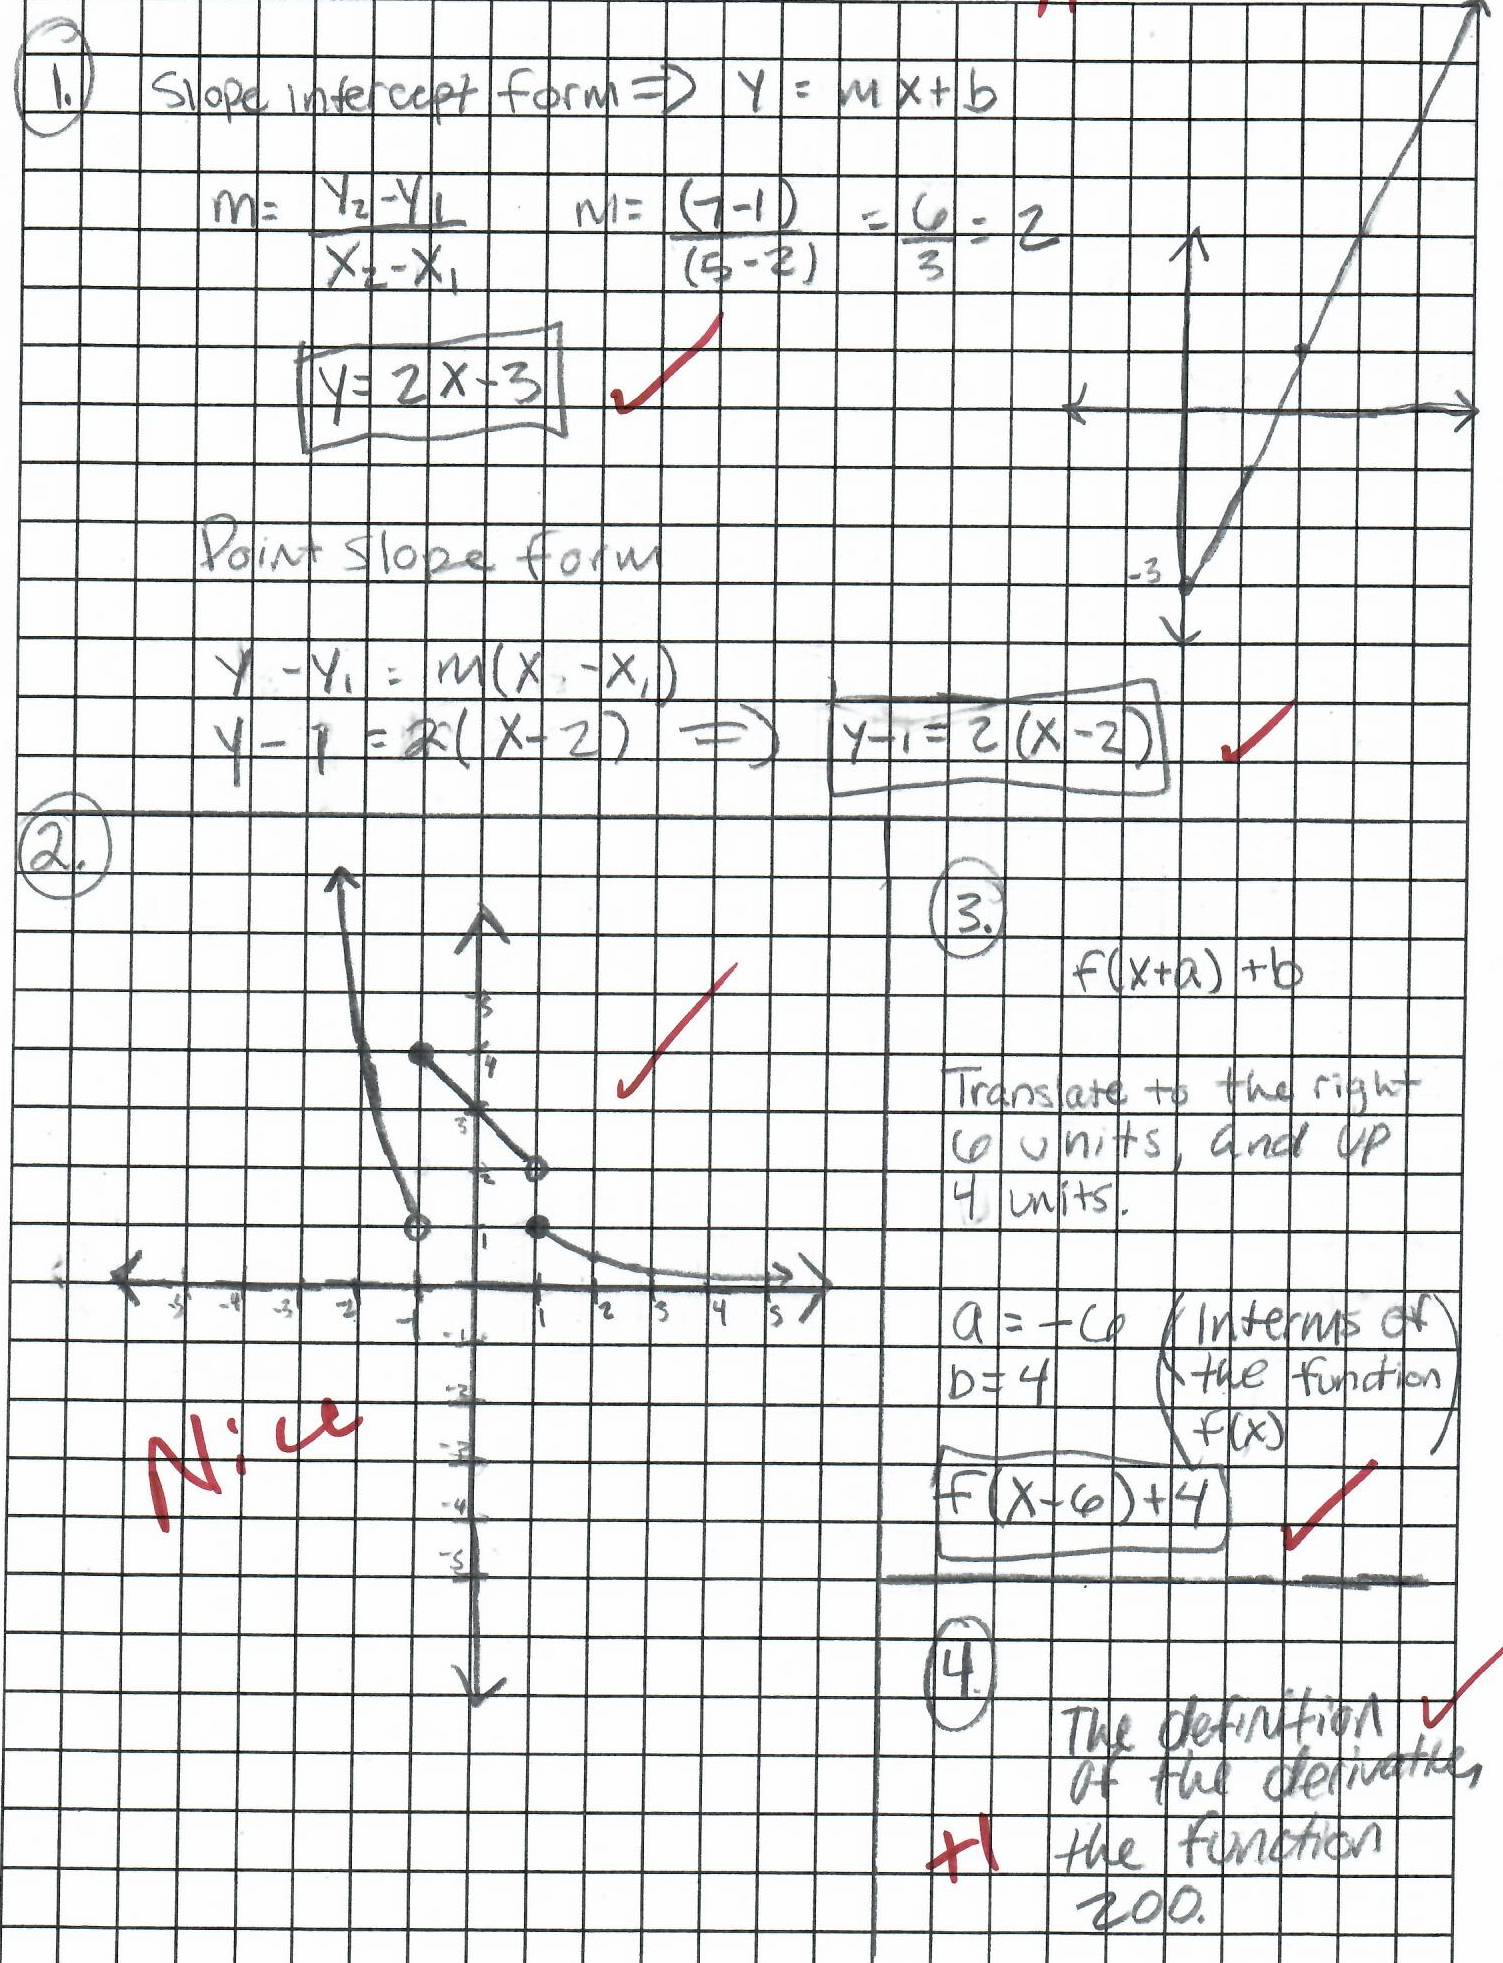 1.
Slope intercept form ⇒ y = mx+b
m = (y₂-y₁)/(x₂-x₁)   m = (7-1)/(5-2) = 6/3 = 2
y = 2x-3
-3
Point slope form
y - y₁ = m(x - x₁)
y - 1 = 2(x-2) ⇒ y-1 = 2(x-2)
2.
5
4
3
2
1
-5 -4 -3 -2 -1 1 2 3 4 5
-1
-2
-3
-4
-5
Nice
3.
f(x+a)+b
Translate to the right
6 units, and up
4 units.
a = -6 (Interms of
b = 4 the function
f(x))
f(x-6)+4
4.
The definition
of the derivative,
the function
zoo.
+1